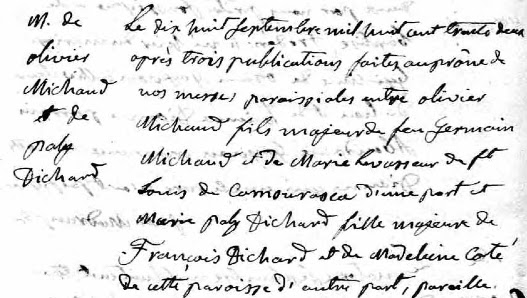 M. de
olivier
Michaud
et de
Dichard
Le dix huit Septembre mil huit cent trente deux
après trois publications faites au prône de
nos messes paroissiales entre olivier
Michaud fils majeur de feu Germain
Michaud et de Marie Levasseur de St
Louis de Camouraska d'une part et
Marie Dichard fille majeure de
François Dichard et de Madeleine Coté
de cette paroisse d'autre part, pareille